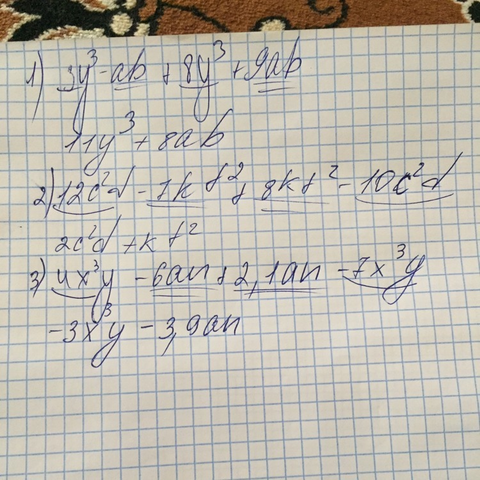 1) 3y³ - ab + 8y³ + 9ab
11y³ + 8ab
2) 12c²d - 7kf² + 8kf² - 10c²d
2c²d + kf²
3) 4x³y - 6an + 2,1an - 7x³y
-3x³y - 3,9an